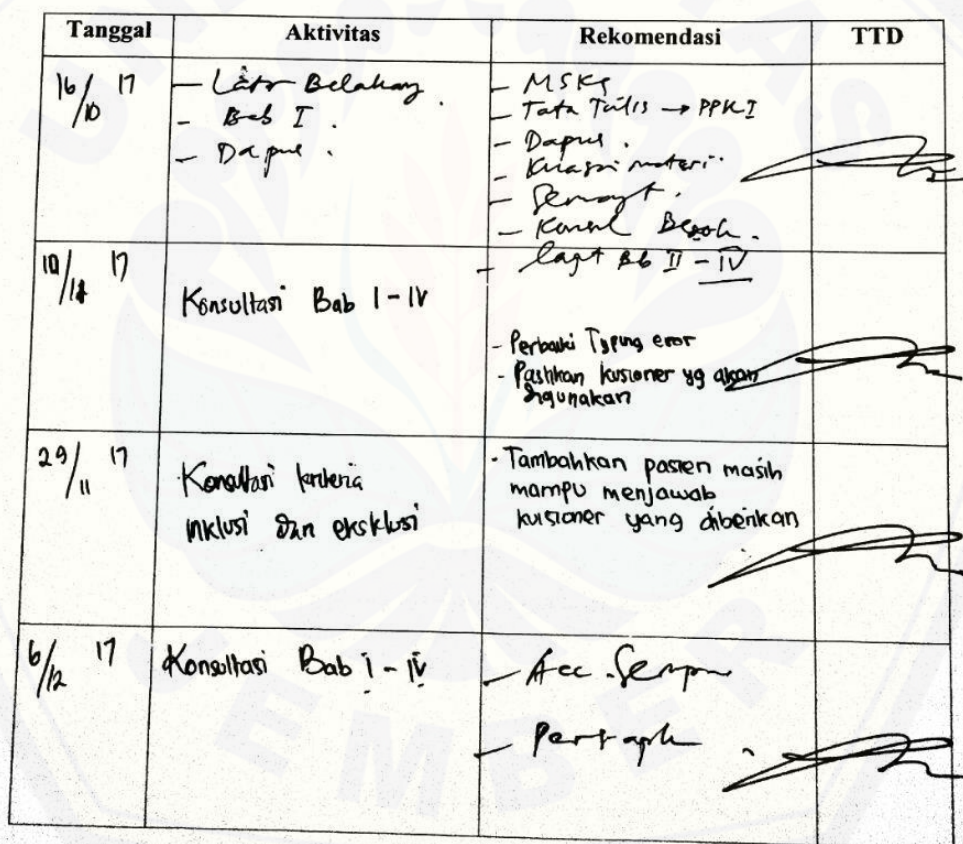 Tanggal Aktivitas Rekomendasi TTD
16/10 17
- Latar Belakang.
- Bab I.
- Dapus.
- MSKS
- Tata Tulis → PPKI
- Dapus.
- Kuasai materi
- Semangat.
- Konsul Besok.
- lagt Bb II - IV
10/11 17
Konsultasi Bab I - IV
- Perbaiki Typing eror
- Pastikan kusioner yg akan
digunakan
29/11 17
Konsultasi kriteria
inklusi dan eksklusi
- Tambahkan pasien masih
mampu menjawab
kuisioner yang diberikan
6/12 17
Konsultasi Bab I - IV
- Acc. Sempro
-
JEMBER